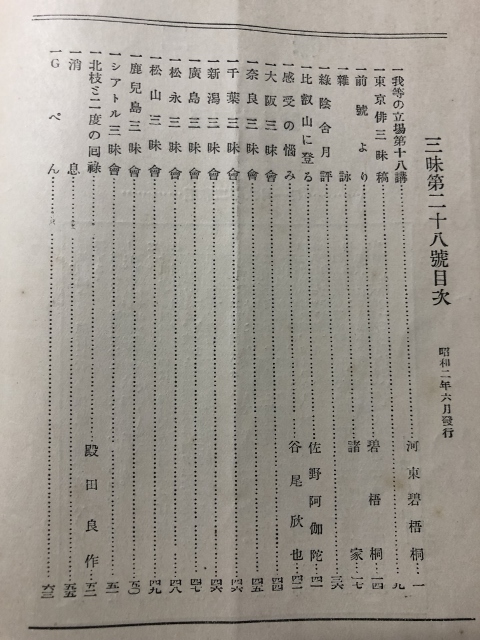 三昧第二十八號目次
昭和二年六月發行
一我等の立場第十八講……河東碧梧桐…一
一東京俳三昧稿……九
一前號より……碧梧桐…一四
一雜詠……諸家…一七
一綠陰舍月評……三六
一比叡山に登る……佐野阿伽陀…四一
一感受の惱み……谷尾欣也…四二
一大阪三昧會……四四
一奈良三昧會……四五
一千葉三昧會……四六
一新潟三昧會……四六
一廣島三昧會……四七
一松永三昧會……四八
一松山三昧會……四九
一鹿兒島三昧會……五〇
一シアトル三昧會……五一
一北枝と二度の囘祿……殿田良作…五二
一消息……五五
一Gぺん……六三